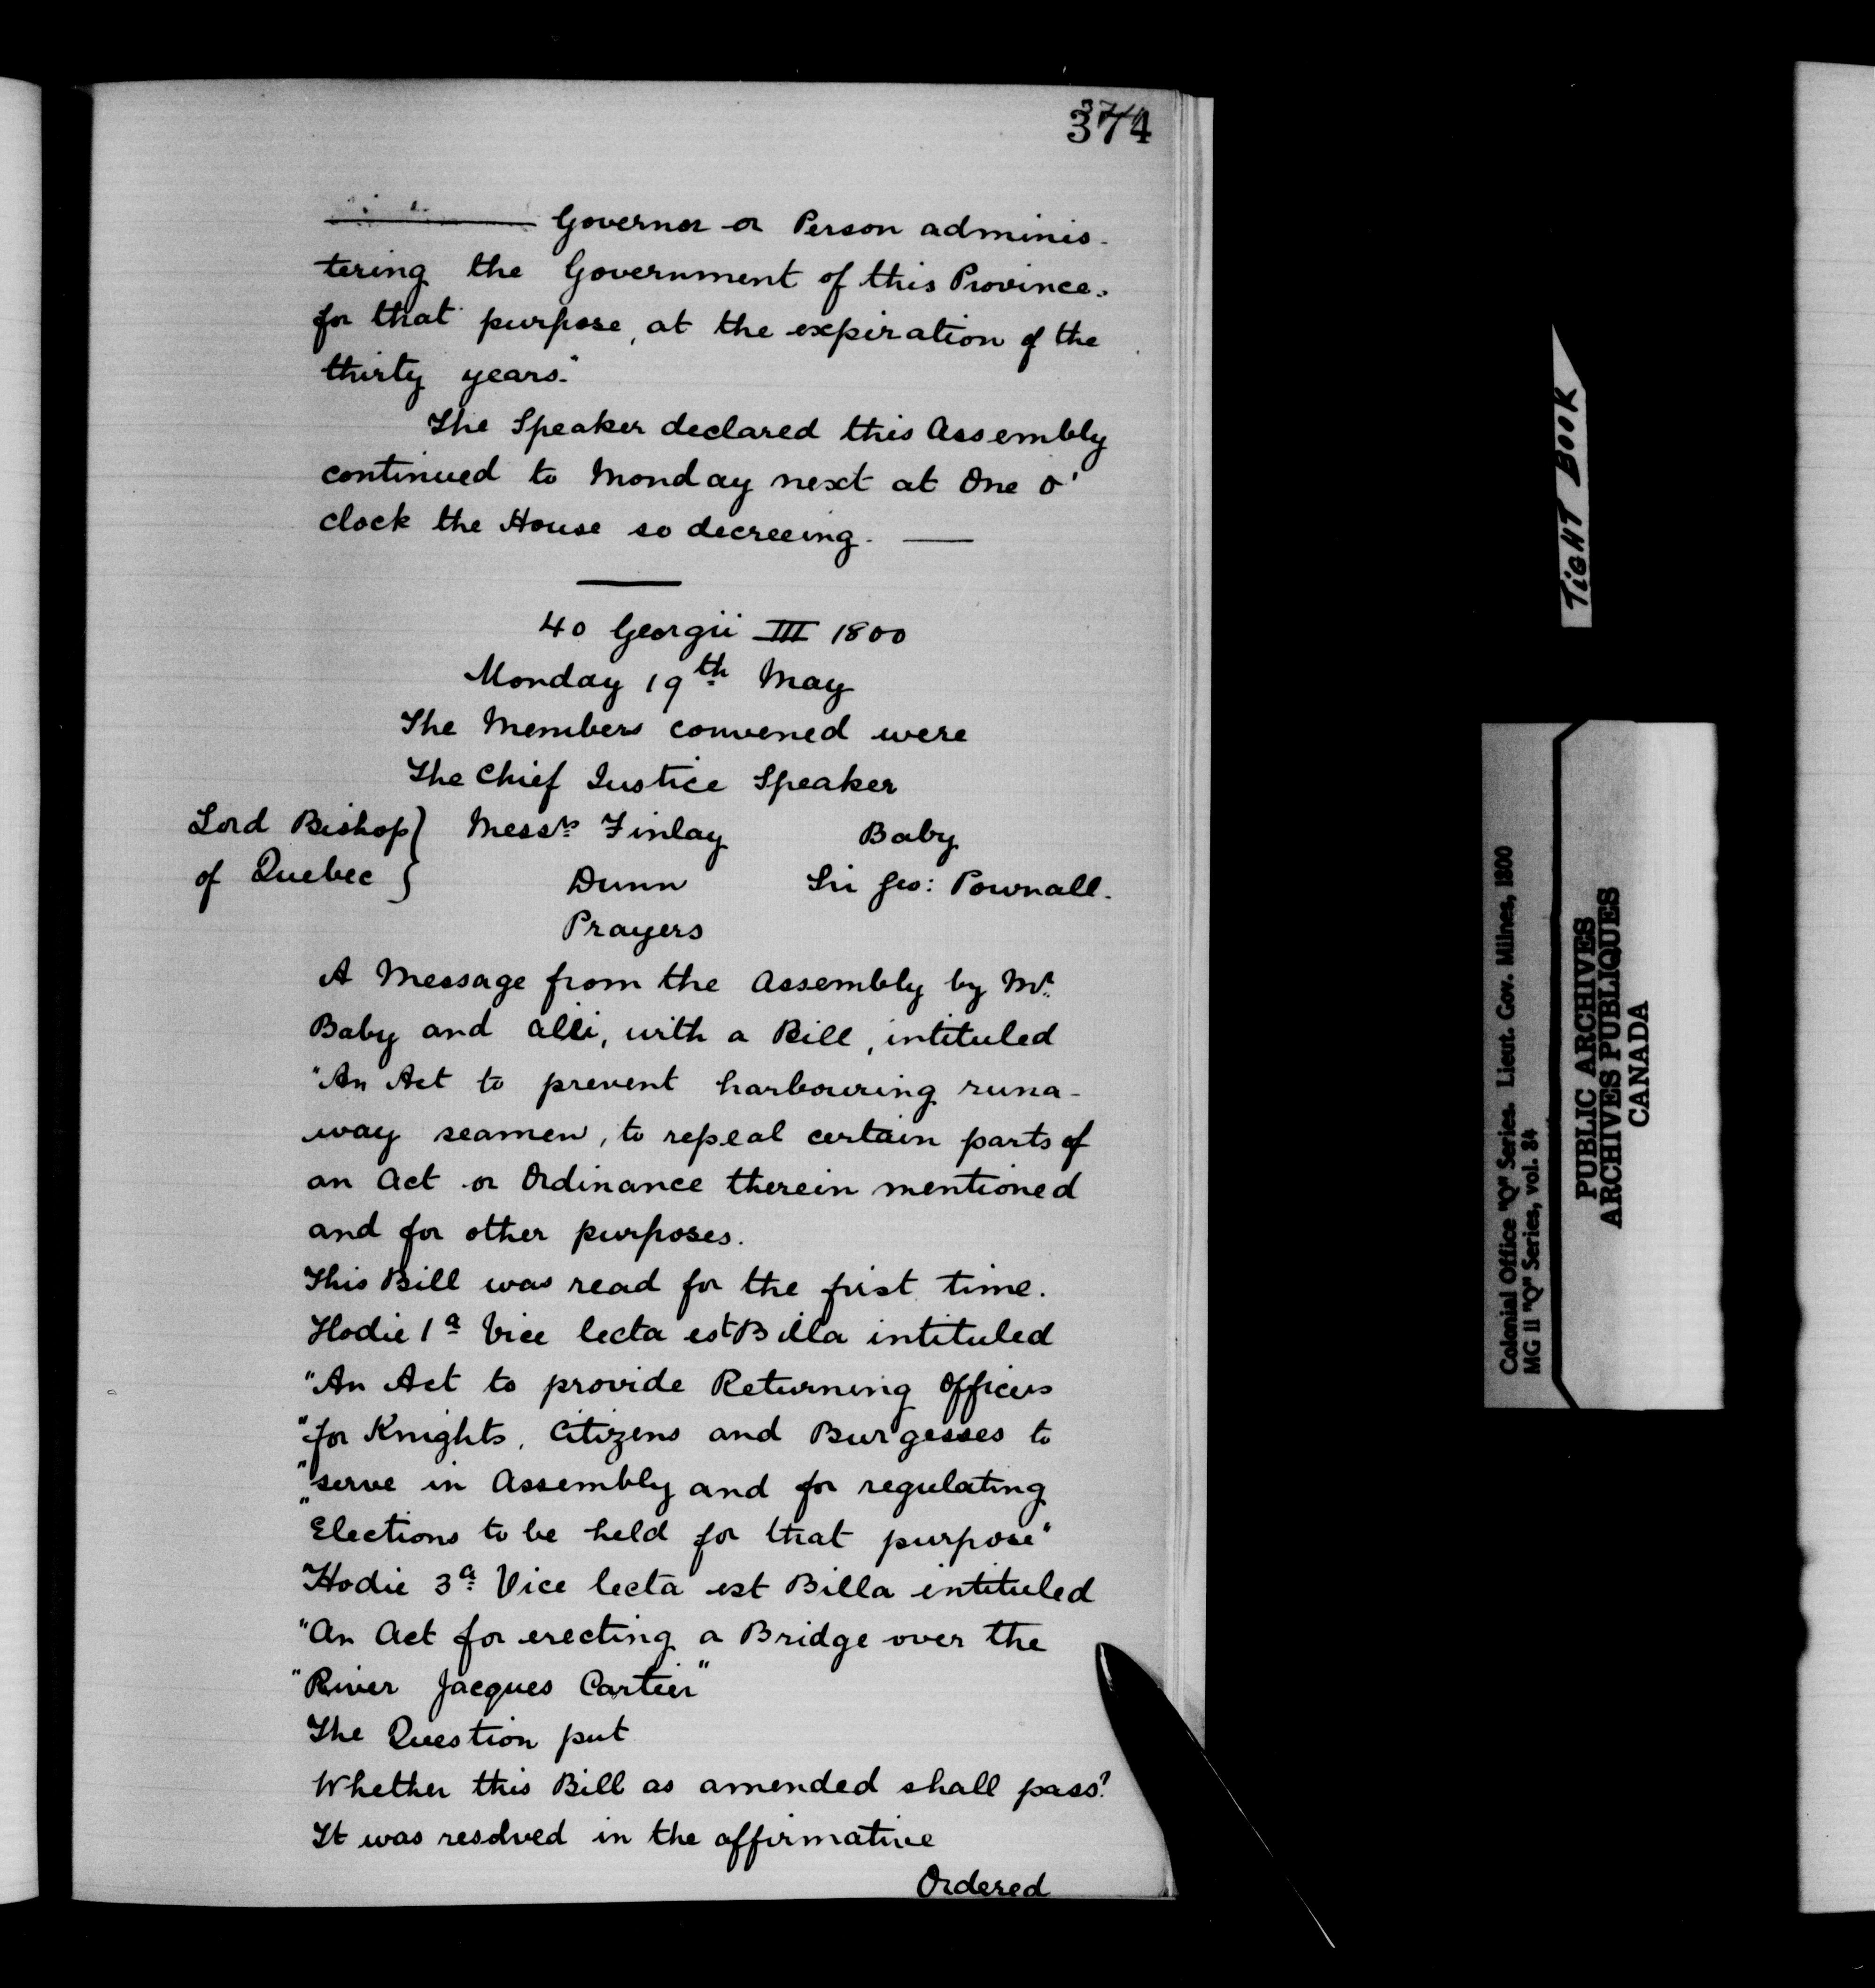 374
Governor or Person adminis-
tering the Government of this Province.
for that purpose, at the expiration of the
thirty years."
The Speaker declared this Assembly
continued to Monday next at One o'
clock the House so decreeing. —
40 Georgii III 1800
Monday 19th May
The Members convened were
The Chief Justice Speaker
Lord Bishop } Messrs Finlay Baby
of Quebec } Dunn Sir Geo: Pownall.
Prayers
A Message from the Assembly by Mr.
Baby and alii, with a Bill, intituled
"An Act to prevent harbouring runa-
way seamen, to repeal certain parts of
an Act or Ordinance therein mentioned
and for other purposes.
This Bill was read for the first time.
Hodie 1a Vice lecta est Billa intituled
"An Act to provide Returning Officers
"for Knights, Citizens and Burgesses to
"serve in Assembly and for regulating
"Elections to be held for that purpose"
Hodie 3a Vice lecta est Billa intituled
"An Act for erecting a Bridge over the
"River Jacques Cartier"
The Question put
Whether this Bill as amended shall pass?
It was resolved in the affirmative
Ordered
TIGHT BOOK
Colonial Office "Q" Series. Lieut. Gov. Milnes, 1800
MG 11 "Q" Series, vol. 84
PUBLIC ARCHIVES
ARCHIVES PUBLIQUES
CANADA